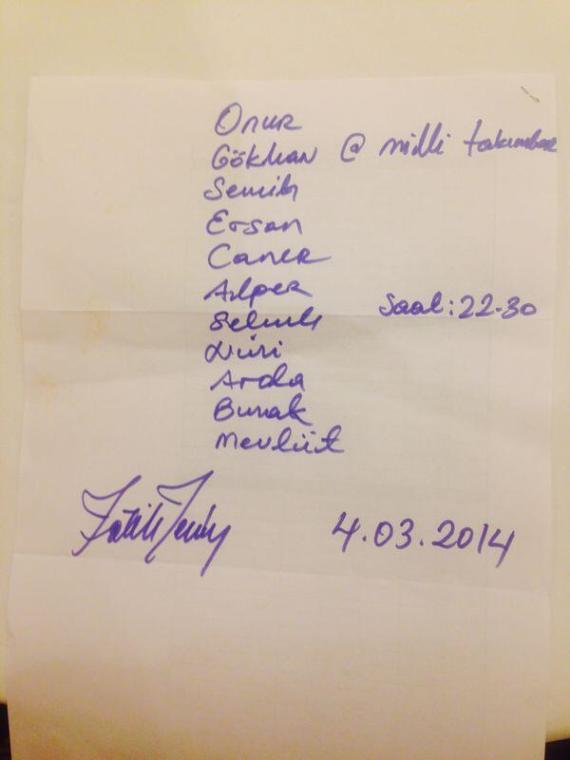 Onur
Gökhan @ milli takımlar
Semih
Ersan
Caner
Alper
Saat: 22-30
Selçuk
Nuri
Arda
Burak
Mevlüt
Fatih Terim
4.03.2014